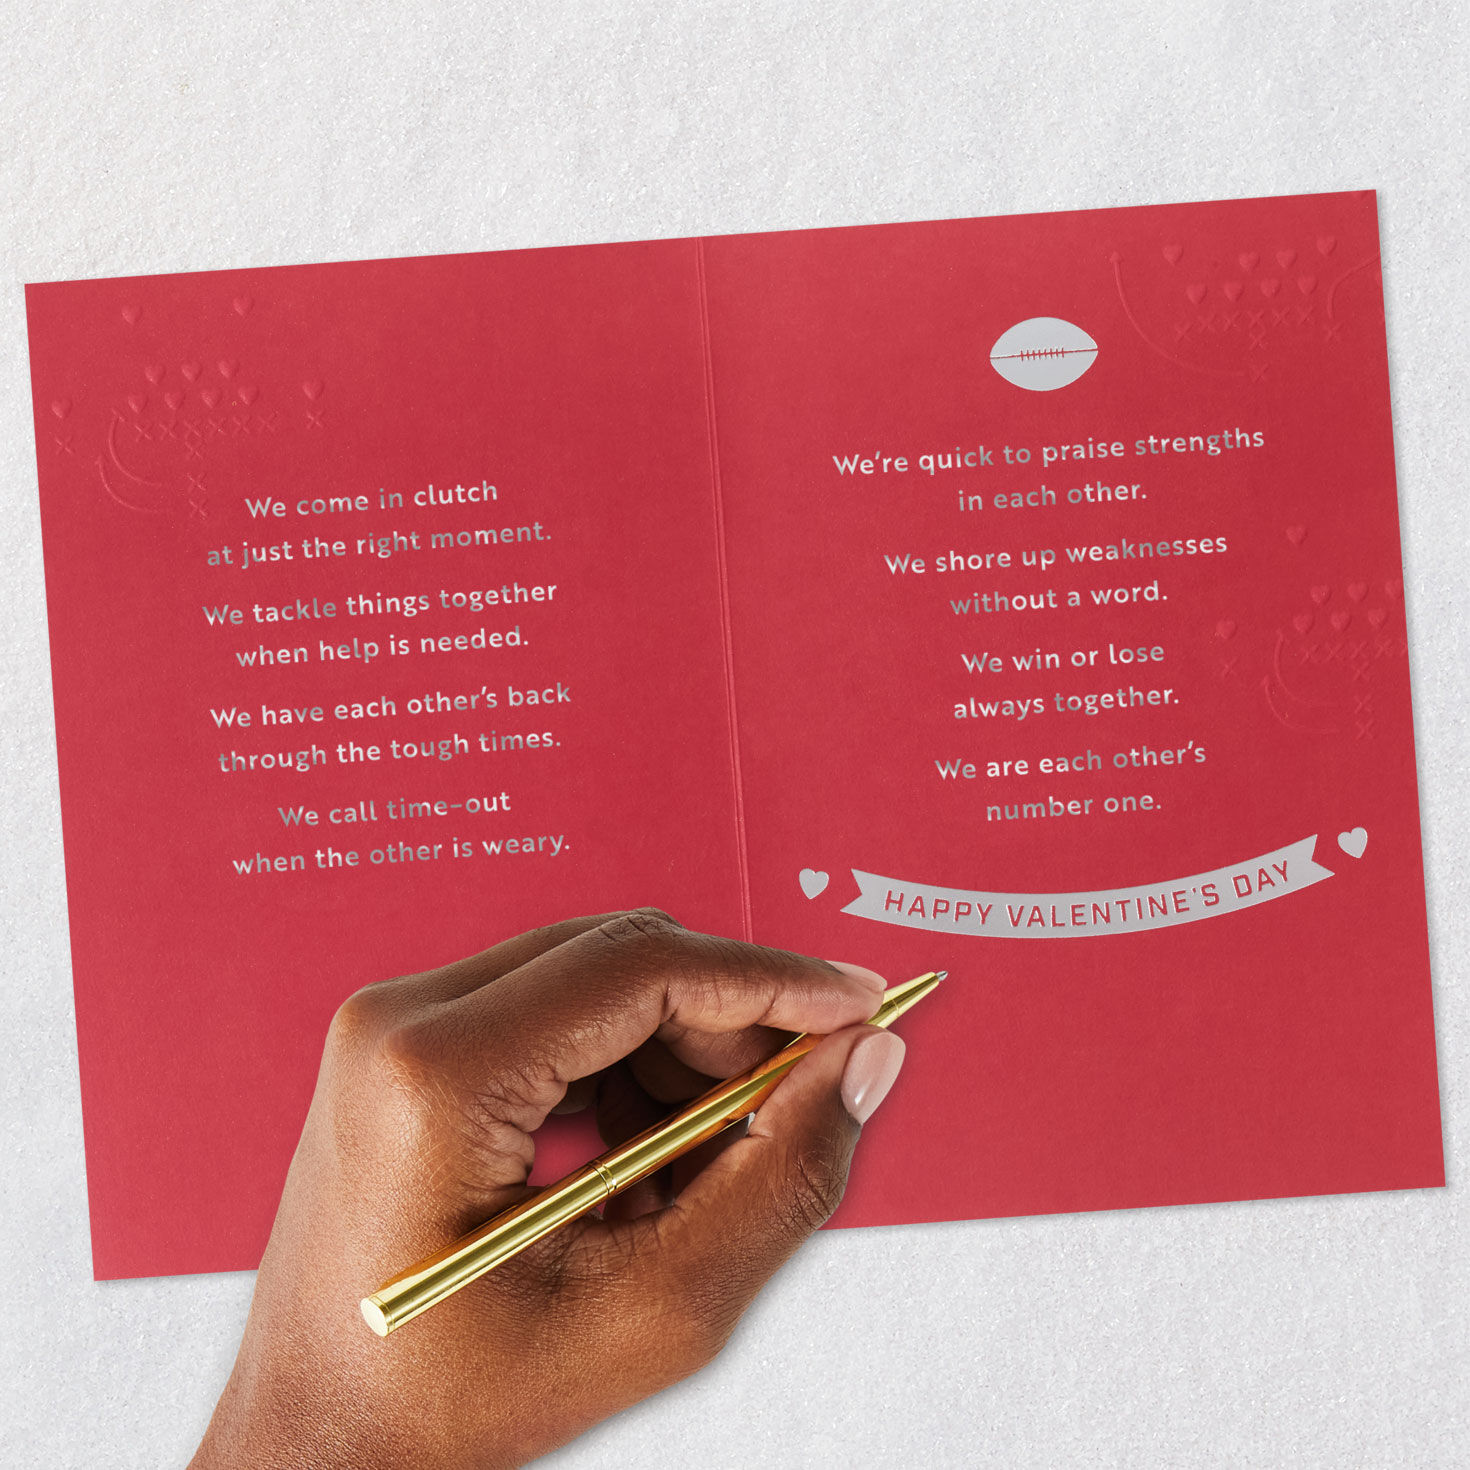 We come in clutch
at just the right moment.
We tackle things together
when help is needed.
We have each other's back
through the tough times.
We call time-out
when the other is weary.
We're quick to praise strengths
in each other.
We shore up weaknesses
without a word.
We win or lose
always together.
We are each other's
number one.
HAPPY VALENTINE'S DAY